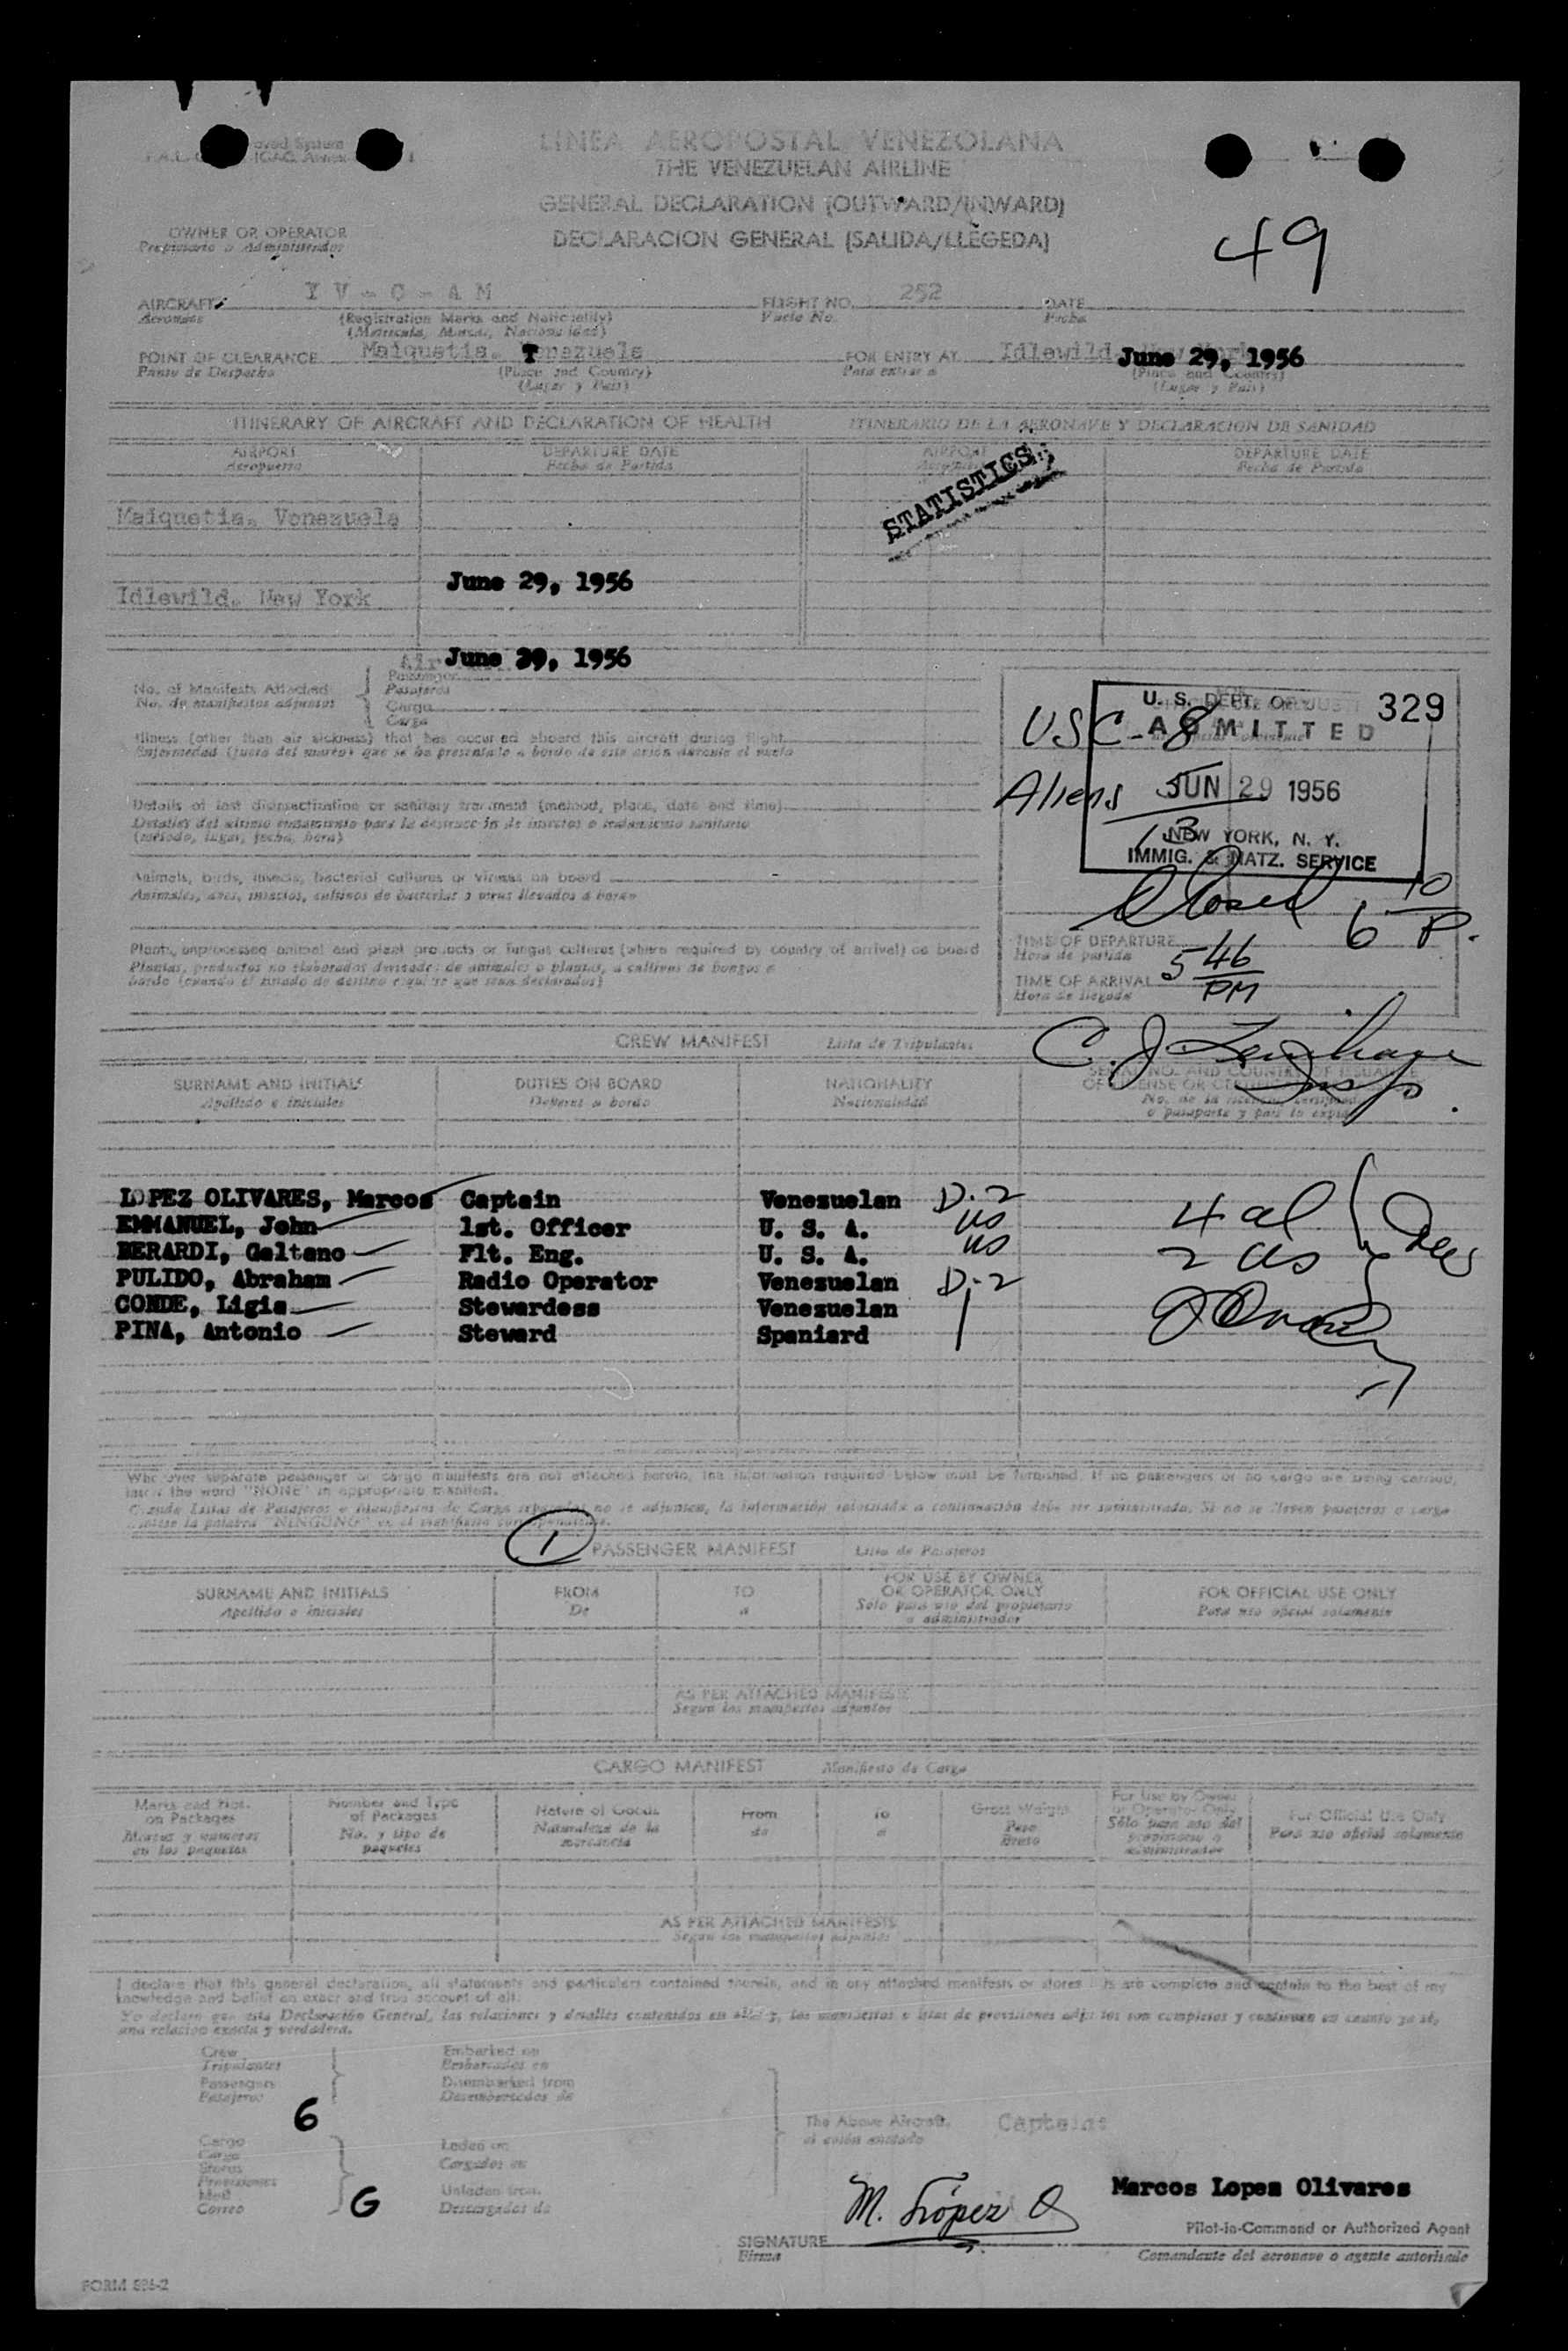 LINEA AEROPOSTAL VENEZOLANA
THE VENEZUELAN AIRLINE
GENERAL DECLARATION (OUTWARD/INWARD)
DECLARACION GENERAL (SALIDA/LLEGEDA)
49
OWNER OR OPERATOR
Propietario o Administrador
AIRCRAFT Y V - C - A M FLIGHT NO. 252 DATE
Aeronave (Registration Marks and Nationality) Vuelo No. Fecha
(Matricula, Marcas, Nacionalidad)
POINT OF CLEARANCE Maiquetia. Venezuela FOR ENTRY AT Idlewild, New York June 29, 1956
Punto de Despacho (Place and Country) Para entrar a (Place and Country)
(Lugar y Pais) (Lugar y Pais)
ITINERARY OF AIRCRAFT AND DECLARATION OF HEALTH ITINERARIO DE LA AERONAVE Y DECLARACION DE SANIDAD
AIRPORT DEPARTURE DATE AIRPORT DEPARTURE DATE
Aeropuerto Fecha de Partida Aeropuerto Fecha de Partida
STATISTICS
Maiquetia, Venezuela
June 29, 1956
Idlewild, New York
Air June 29, 1956
Passenger
No. of Manifests Attached Pasajeros
No. de manifiestos adjuntos Cargo
Carga
U. S. DEPT. OF JUSTI 329
USC-8 ADMITTED
Illness (other than air sickness) that has occurred aboard this aircraft during flight
Enfermedad (fuera del mareo) que se ha presentado a bordo de este avion durante el vuelo
Aliens JUN 29 1956
13
Details of last disinsectization or sanitary treatment (method, place, date and time)
(método, lugar, fecha, hora)
NEW YORK, N. Y.
IMMIG. & NATZ. SERVICE
Animals, birds, insects, bacterial cultures or viruses on board
Animales, aves, insectos, cultivos de bacterias o virus llevados a bordo
Closed 6 10 P.
Plants, unprocessed animal and plant products or fungus cultures (where required by country of arrival) on board
TIME OF DEPARTURE
Hora de partida
TIME OF ARRIVAL 5 46 PM
Hora de llegada
CREW MANIFEST Lista de Tripulantes
C. J.
Insp.
SURNAME AND INITIALS DUTIES ON BOARD NATIONALITY SERIAL NO. AND COUNTRY OF ISSUANCE
Apellido e iniciales Deberes a bordo Nacionalidad OF LICENSE OR CERTIFICATE
LOPEZ OLIVARES, Marcos Captain Venezuelan D-2
EMMANUEL, John 1st. Officer U. S. A. US
BERARDI, Gaitano Flt. Eng. U. S. A. US
PULIDO, Abraham Radio Operator Venezuelan D-2
CONDE, Ligia Stewardess Venezuelan
PINA, Antonio Steward Spaniard
4 al
2 US
Whenever separate passenger or cargo manifests are not attached hereto, the information required below must be furnished. If no passengers or no cargo are being carried,
insert the word "NONE" in appropriate manifest.
1 PASSENGER MANIFEST Lista de Pasajeros
SURNAME AND INITIALS FROM TO FOR USE BY OWNER OR OPERATOR ONLY FOR OFFICIAL USE ONLY
Apellido e iniciales De a Solo para uso del propietario o administrador Para uso oficial solamente
AS PER ATTACHED MANIFESTS
Segun los manifiestos adjuntos
CARGO MANIFEST Manifiesto de Carga
Marks and Nos. on Packages Number and Type of Packages Nature of Goods From To Gross Weight For Use by Owner or Operator Only For Official Use Only
Marcas y numeros en los paquetes No. y tipo de paquetes Naturaleza de la mercancia de a Peso Bruto Sólo para uso del propietario o administrador Para uso oficial solamente
AS PER ATTACHED MANIFESTS
Segun los manifiestos adjuntos
I declare that this general declaration, all statements and particulars contained therein, and in any attached manifests or stores are complete and contain to the best of my
knowledge and belief an exact and true account of all:
una relacion exacta y verdadera.
Crew Embarked on
Tripulantes Embarcados en
Passengers Disembarked from
Pasajeros Desembarcados de
6
The Above Aircraft, Captain:
Cargo Laden on
Carga Cargados en
Stores
Provisiones
Mail Unladen from
Correo G Descargados de
Marcos Lopez Olivares
M. López O
Pilot-in-Command or Authorized Agent
SIGNATURE
Firma Comandante del aeronave o agente autorizado
FORM 896-2